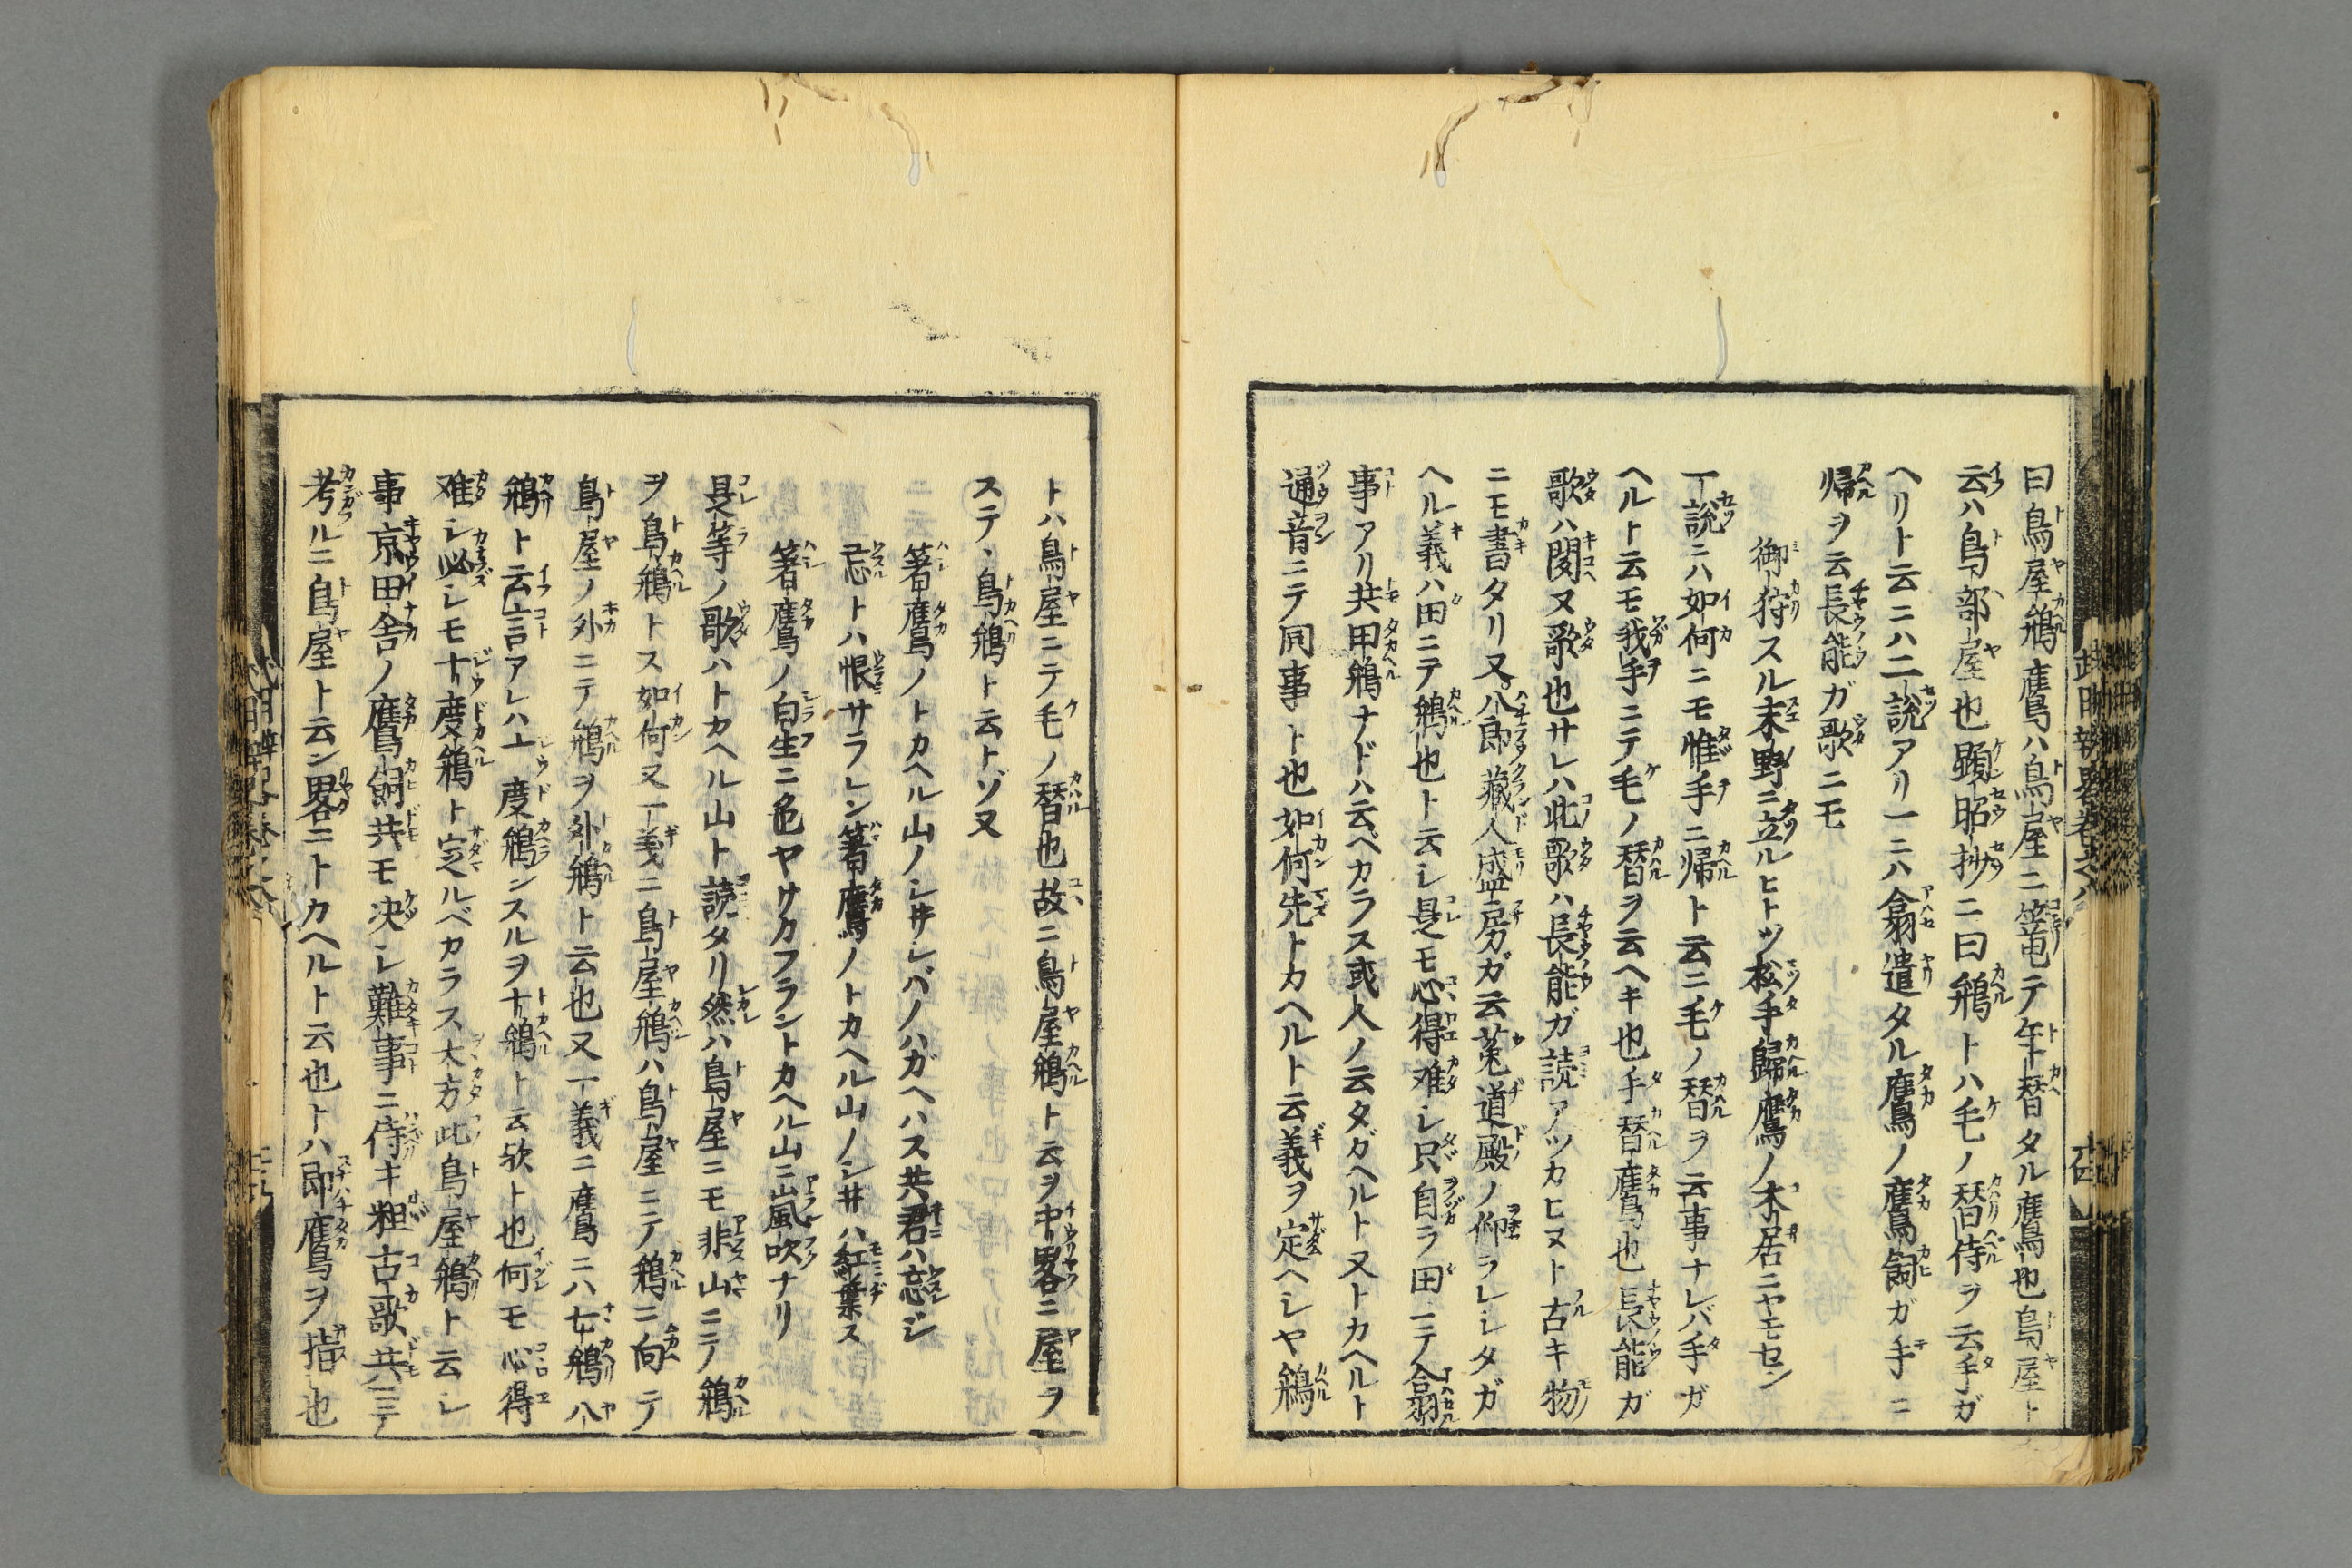 曰鳥屋鵃鷹ハ鳥屋ニ篭テ年替タル鷹也鳥屋ト
云ハ鳥部屋也顕昭抄ニ曰鵃トハ毛ノ替侍ヲ云手ガ
ヘリト云ニハ二説アリ一ニハ翕遣タル鷹ノ鷹飼ガ手ニ
帰ヲ云長能ガ歌ニモ
御狩スル末野ニ立ルヒトツ松手歸鷹ノ木居ニヤモセン
一説ニハ如何ニモ惟手ニ帰ト云ニ毛ノ替ヲ云事ナレバ手ガ
ヘルト云モ我手ニテ毛ノ替ヲ云ヘキ也手替鷹也長能ガ
歌ハ聞ヌ歌也サレハ此歌ハ長能ガ読アツカヒヌト古キ物
ニモ書タリ又八郎藏人盛房ガ云菟道殿ノ仰ラレシタガ
ヘル義ハ田ニテ鵃也ト云シ是モ心得难シ只自ラ田ニテ翕
事アリ共田鵃ナドハ云ベカラス或人ノ云タガヘルト又トカヘルト
通音ニテ同事ト也如何先トカヘルト云義ヲ定ヘシヤ鵃
トハ鳥屋ニテ毛ノ替也故ニ鳥屋鵃ト云ヲ中畧ニ屋ヲ
ステ、鳥鵃ト云トゾ又
箸鷹ノトカヘル山ノシ井シバノハガヘハス共君ハ忘ジ
忘トハ恨サラレン箸鷹ノトカヘル山ノシ井ハ紅葉ス
箸鷹ノ白生ニ色ヤサカフラントカヘル山ニ嵐吹ナリ
是等ノ歌ハトカヘル山ト読タリ然ハ鳥屋ニモ非山ニテ鵃
ヲ鳥鵃トス如何又一義ニ鳥屋鵃ハ鳥屋ニテ鵃ニ向テ
鳥屋ノ外ニテ鵃ヲ外鵃ト云也又一義ニ鷹ニハ七鵃八
鵃ト云言アレハ十度鵃ンスルヲ十鵃ト云欤ト也何モ心得
难シ必シモ十度鵃ト定ルベカラス大方此鳥屋鵃ト云シ
事京田舎ノ鷹飼共モ决シ難事ニ侍キ粗古歌共ニテ
考ルニ鳥屋ト云ン畧ニトカヘルト云也トハ即鷹ヲ指也